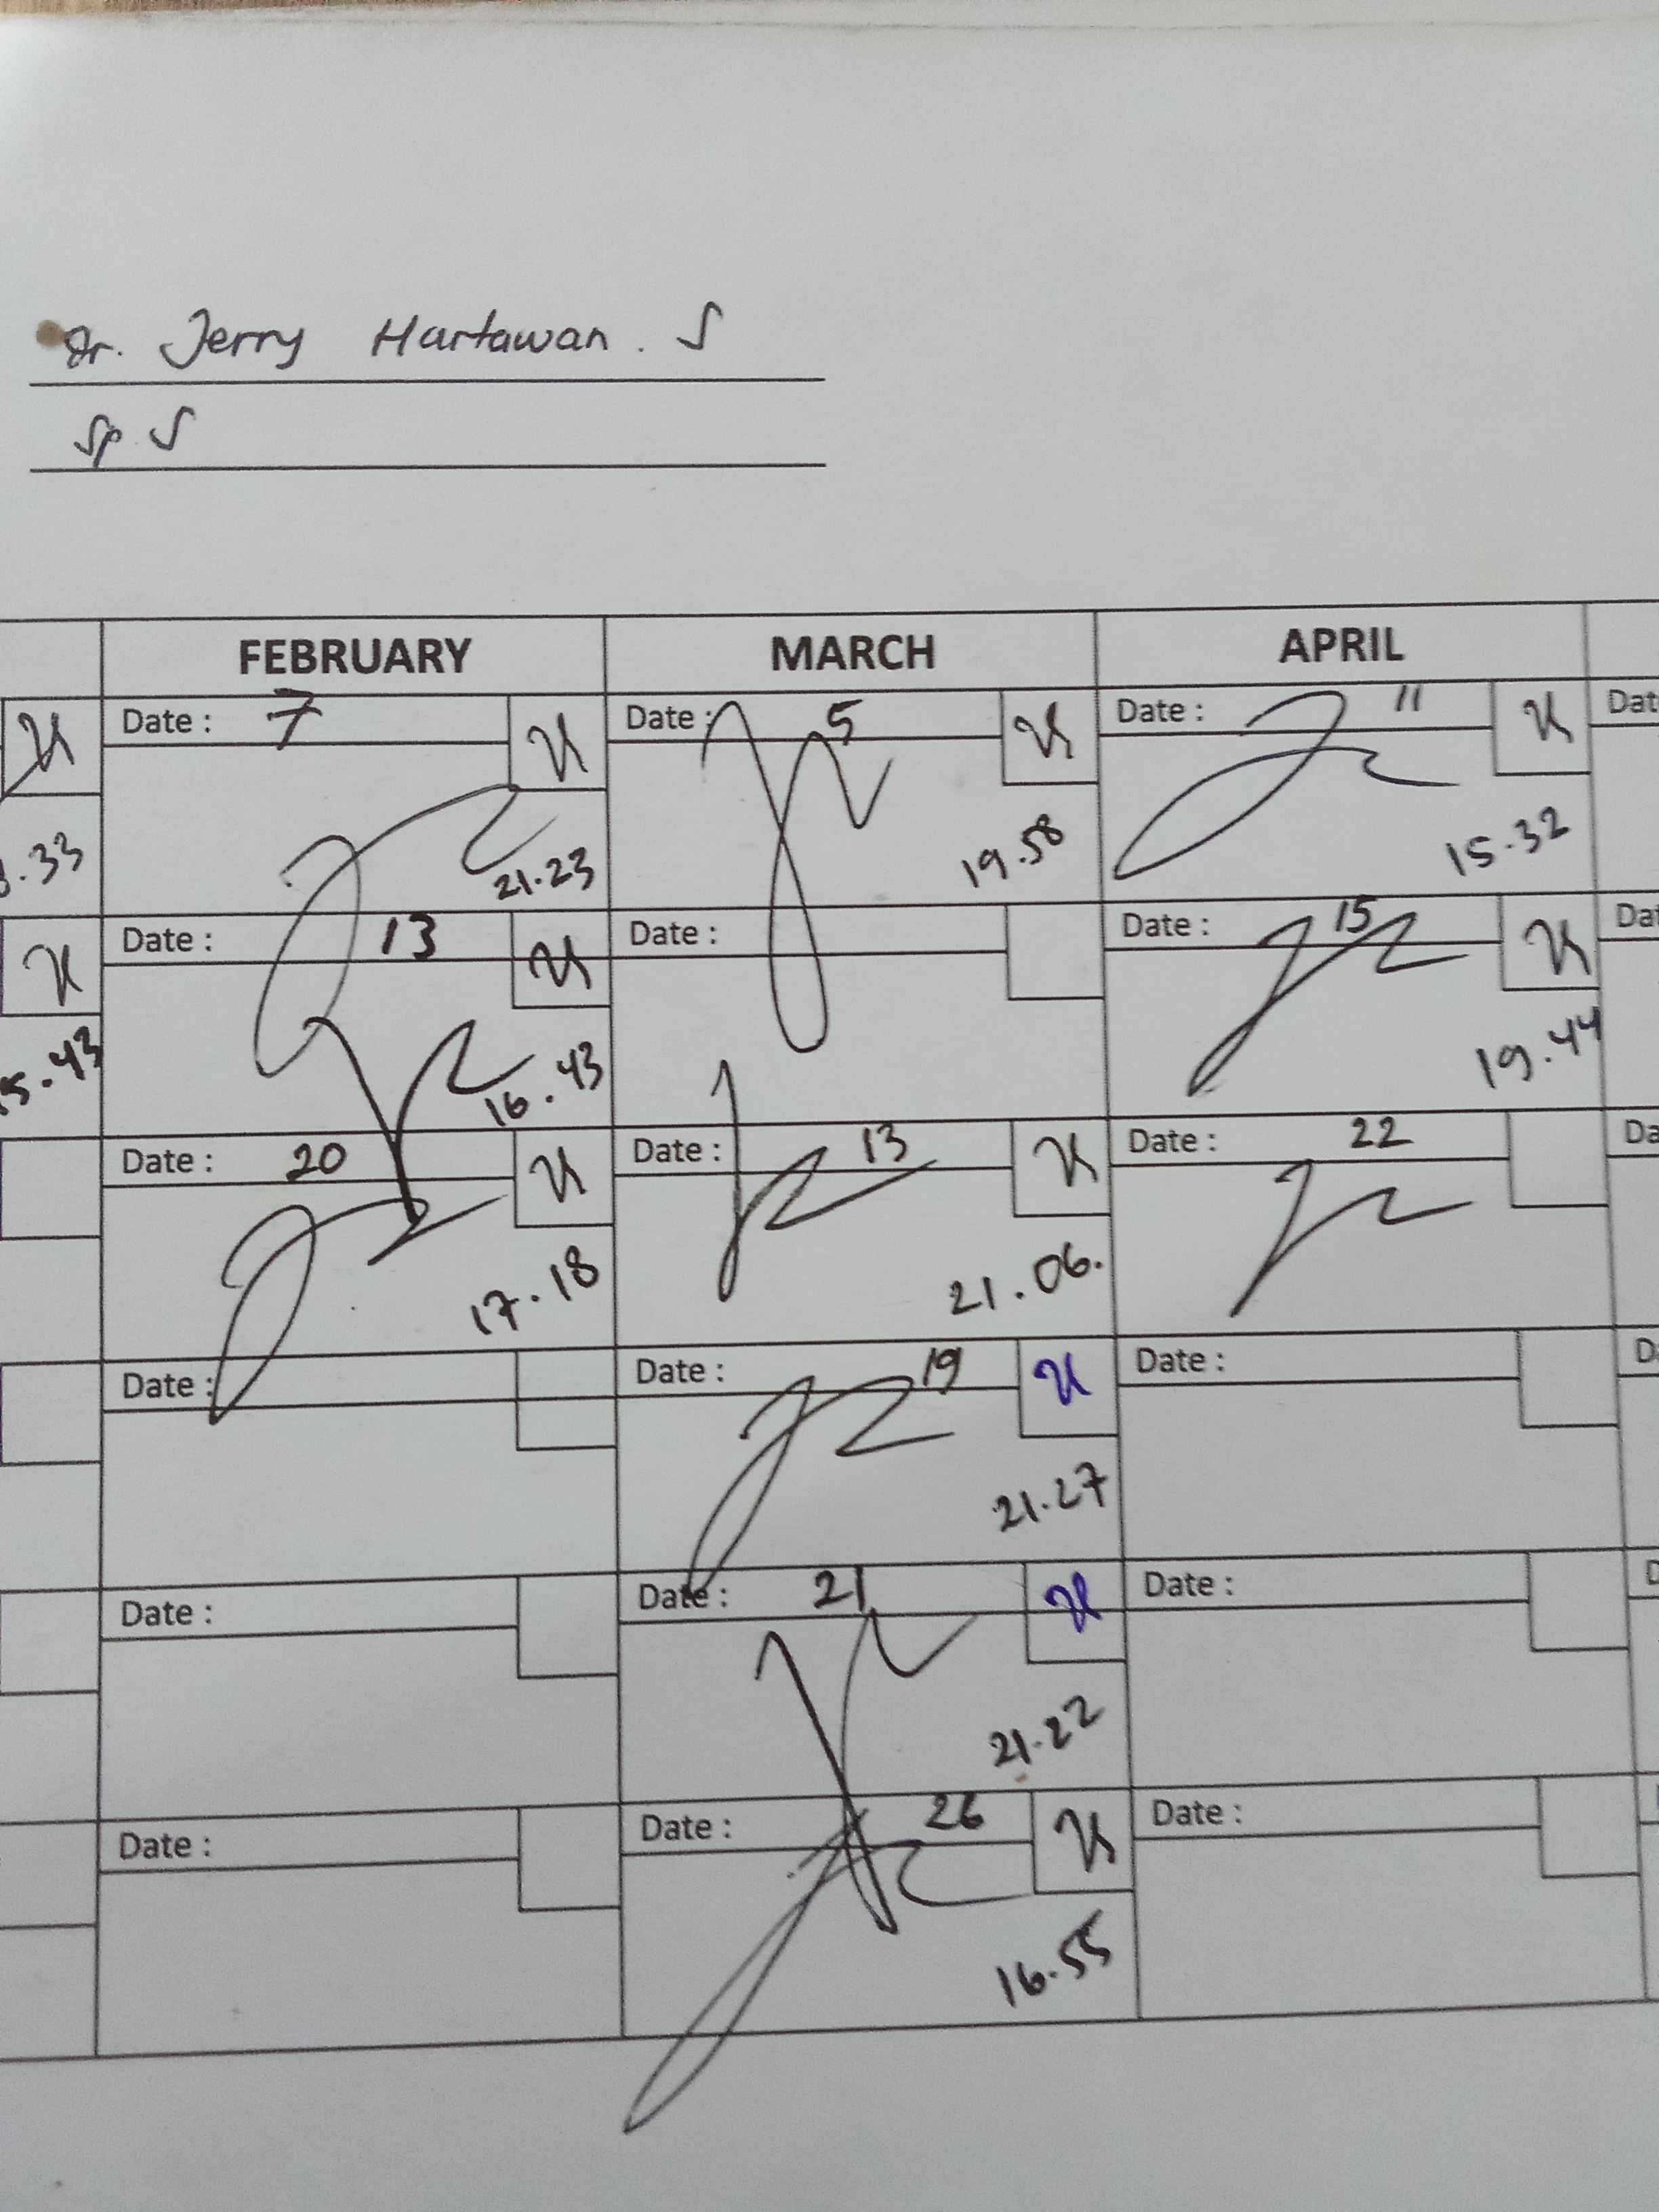 Dr. Jerry Hartawan. S
Sp S
FEBRUARY MARCH APRIL
Date : 7 Date : 5 Date : 11 Dat
.33 21.23 19.58 15.32
Date : 13 Date : Date : 15 Dat
5.43 16.43 19.44
Date : 20 Date : 13 Date : 22 Da
17.18 21.06.
Date : Date : 19 Date : D
21.27
Date : Date : 21 Date : D
21.22
Date : Date : 26 Date :
16.55